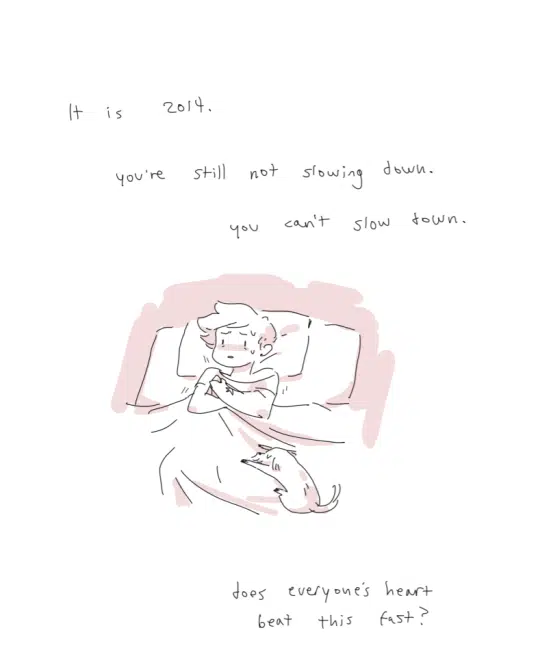 It is 2014.
you're still not slowing down.
you can't slow down.
does everyone's heart
beat this fast?